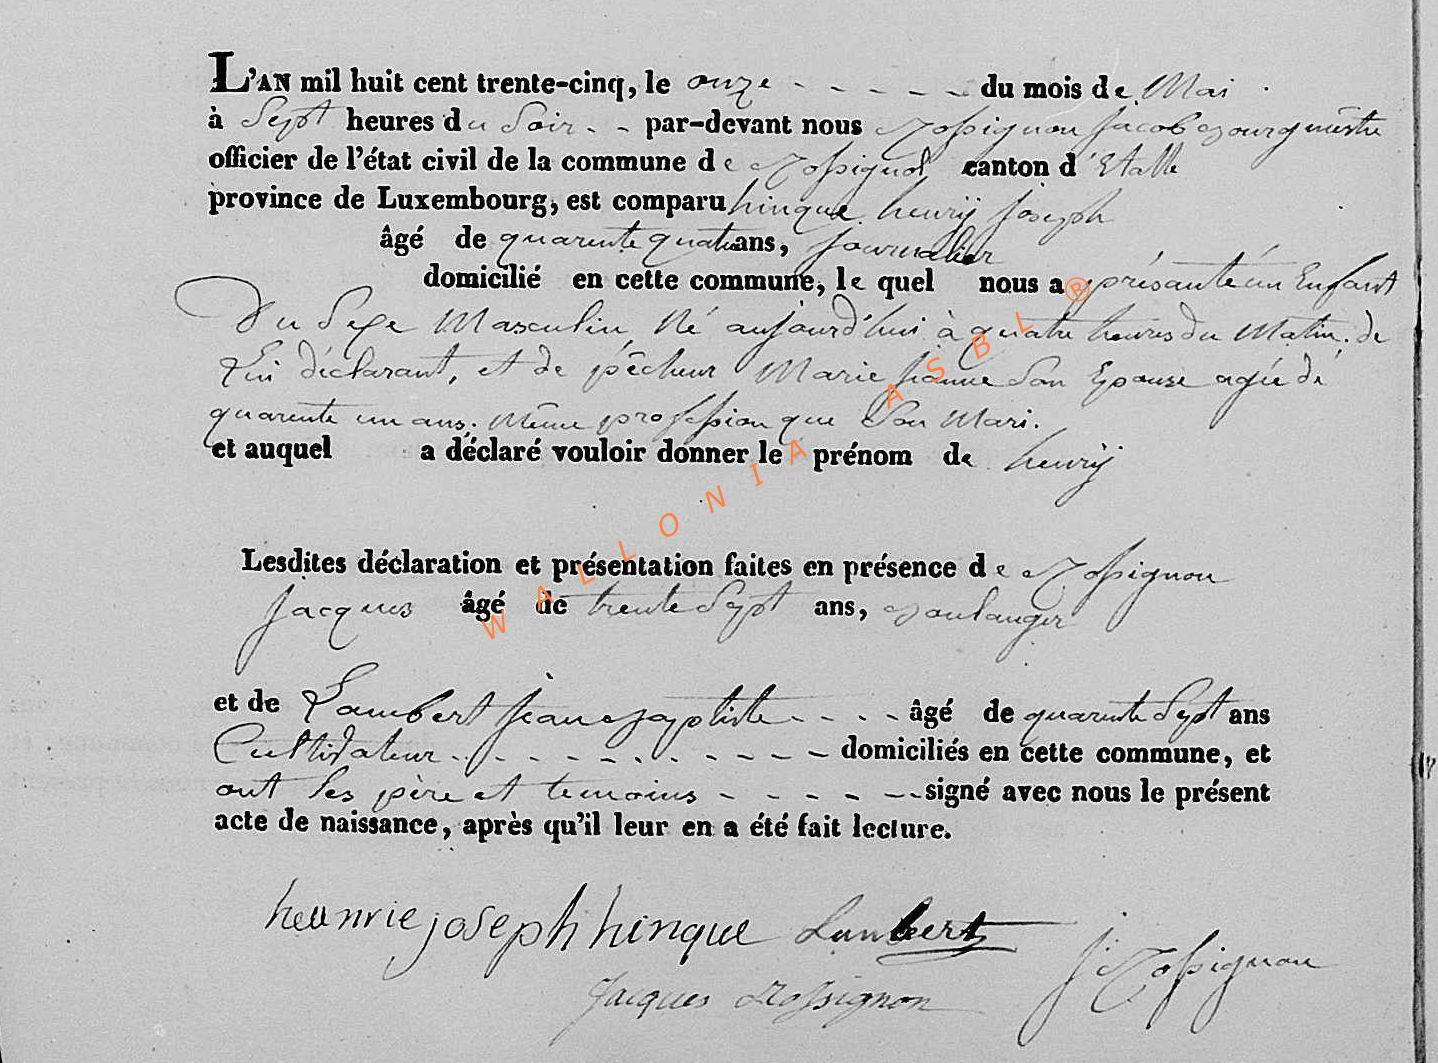 L'AN mil huit cent trente-cinq, le onze - - - - - du mois de Mai
à Sept heures du Soir - - par-devant nous Rossignon Jacob Bourgmêstre
officier de l'état civil de la commune de Rossignol canton d'Etalle
province de Luxembourg, est comparu hinque henrij Joseph
âgé de quarente quatre ans, Journalier
domicilié en cette commune, le quel nous a présanté un Enfant
Du Sexe Masculin, Né aujourd'hui à quatre heures du Matin. de
Lui déclarant, et de pêcheur Marie Jeanne Son Epouse agée de
quarente un ans, Même profession que Son Mari.
et auquel a déclaré vouloir donner le prénom de henrij
Lesdites déclaration et présentation faites en présence de Rossignon
Jacques âgé de trente Sept ans, Boulanger
et de Lambert Jean Baptiste - - - - âgé de quarente Sept ans
Cultivateur - - - - - - - - - - domiciliés en cette commune, et
ont les père et temoins - - - - - signé avec nous le présent
acte de naissance, après qu'il leur en a été fait lecture.
heunrie joseph hinque Lambert
J: Rossignon
Jacques Rossignon
WALLONIA ASBL ®